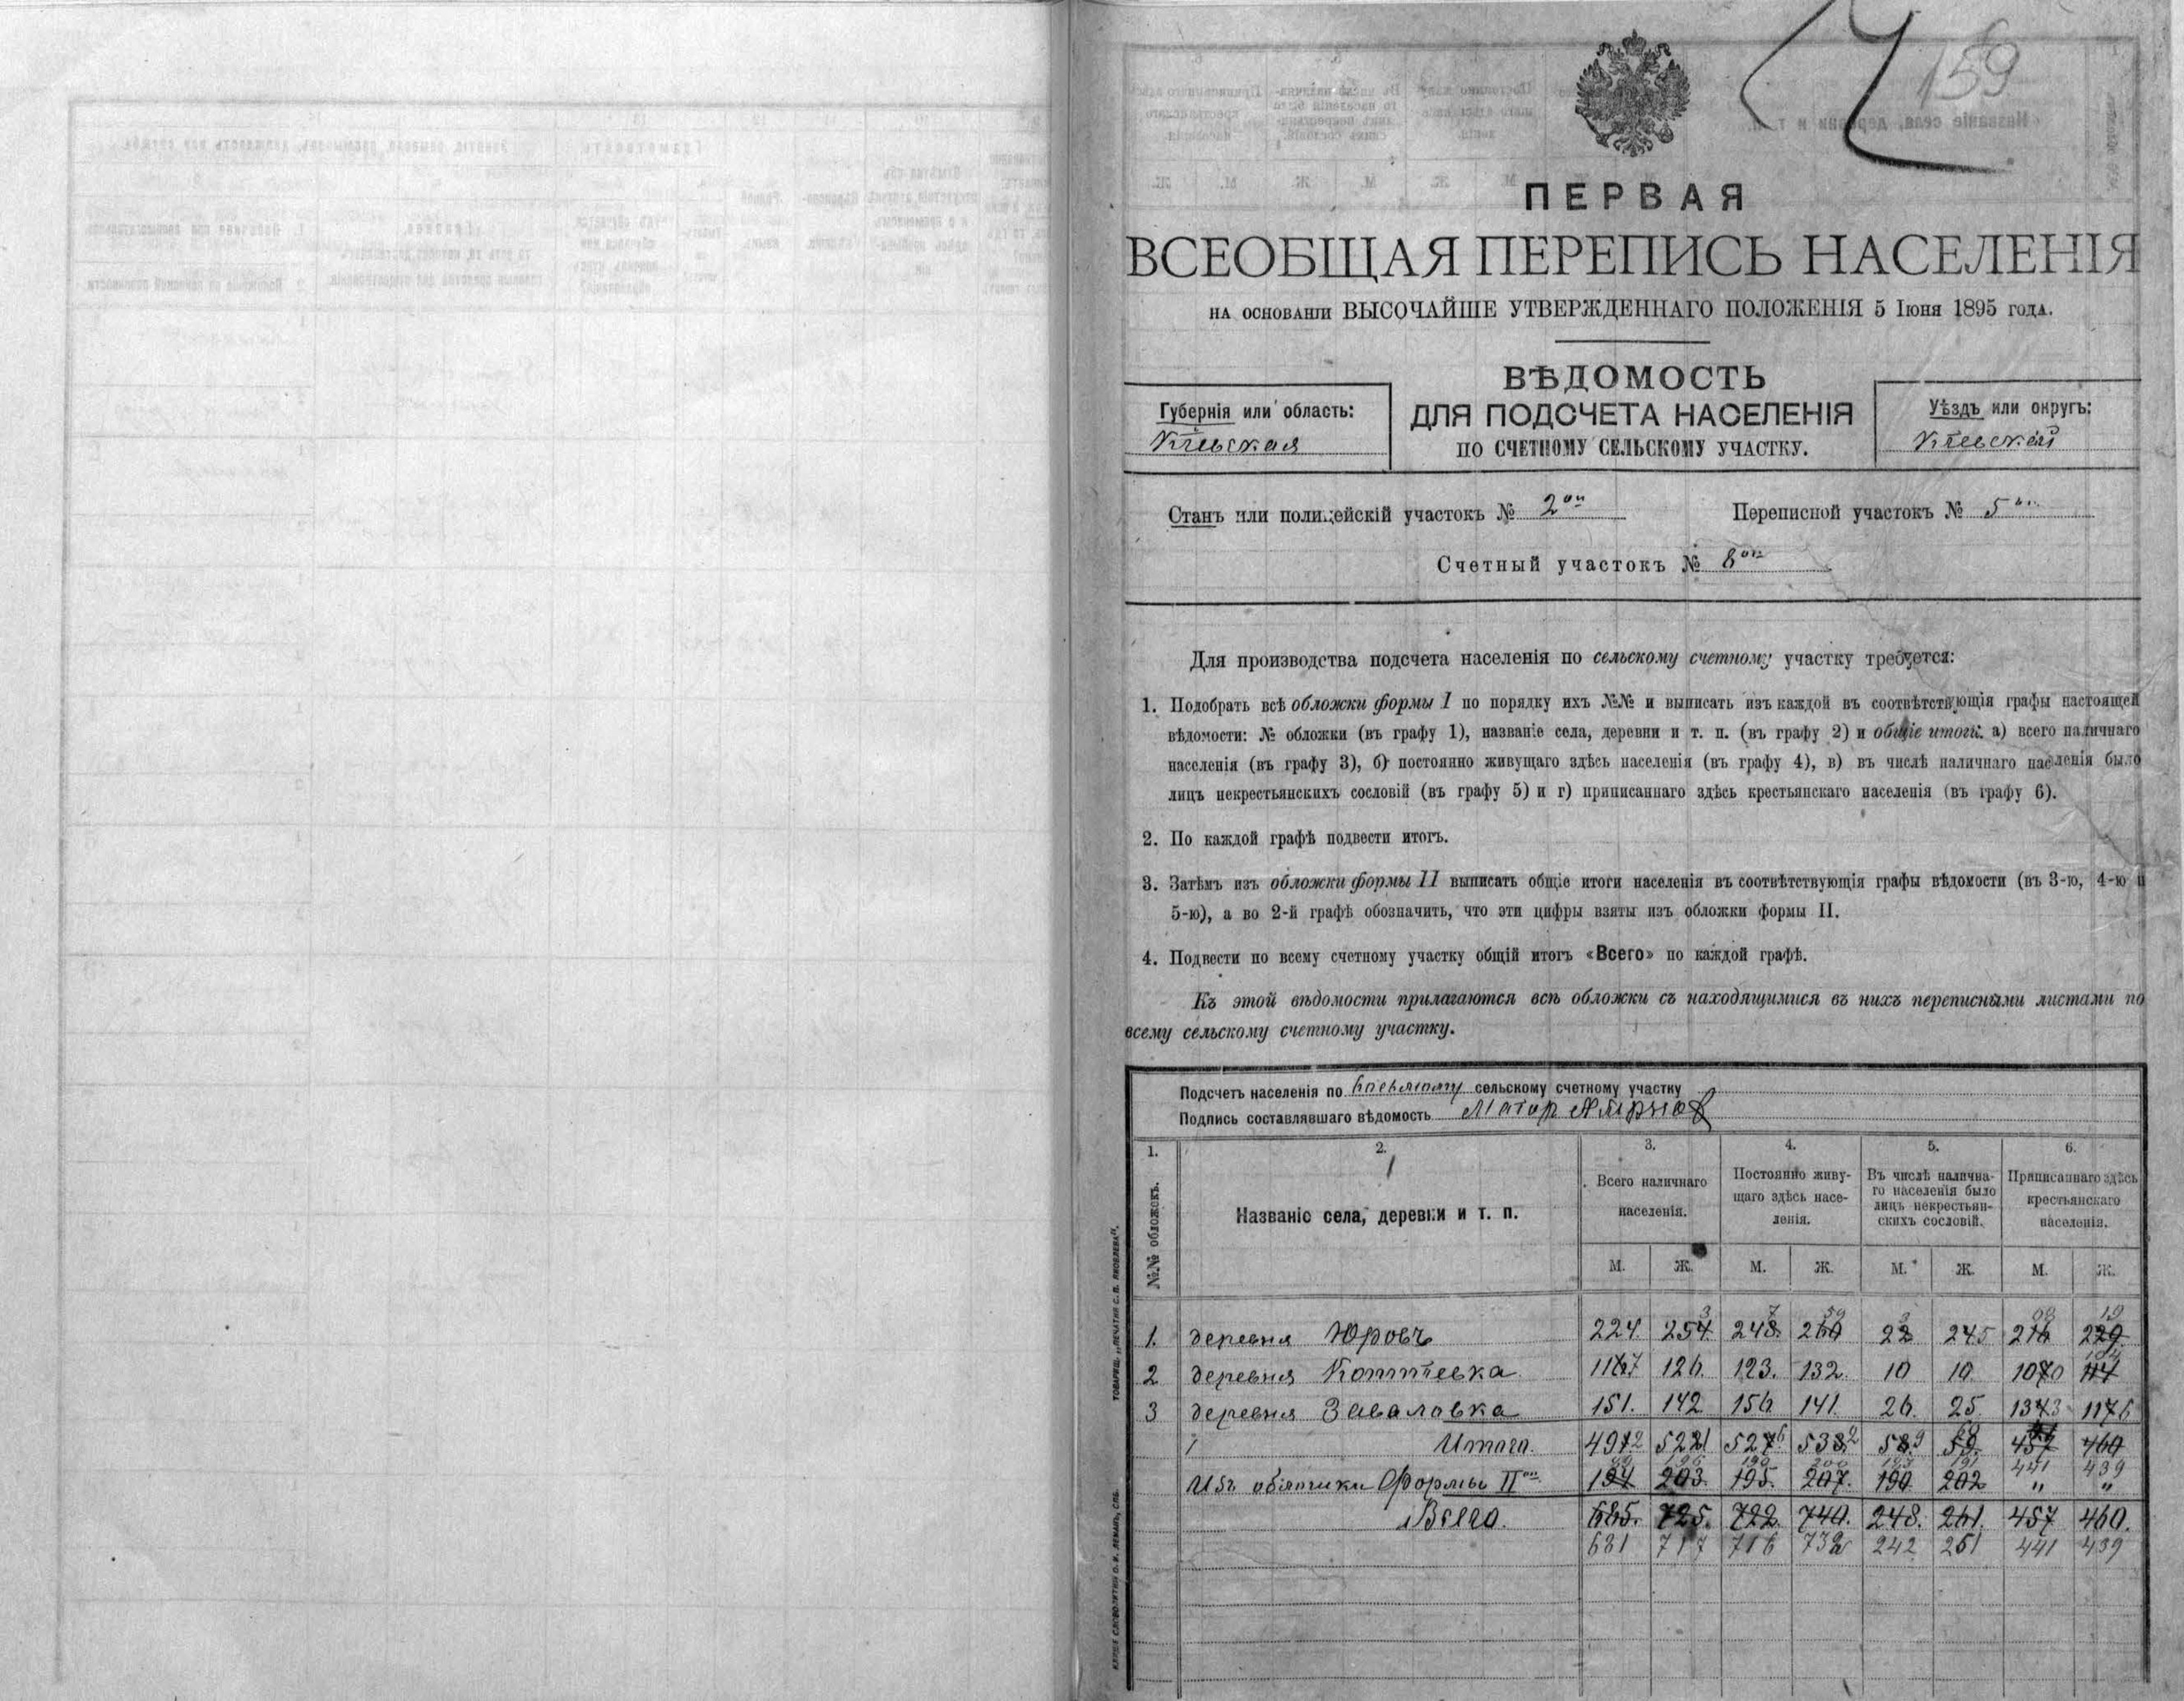 159
ПЕРВАЯ
ВСЕОБЩАЯ ПЕРЕПИСЬ НАСЕЛЕНІЯ
НА ОСНОВАНІИ ВЫСОЧАЙШЕ УТВЕРЖДЕННАГО ПОЛОЖЕНІЯ 5 Іюня 1895 ГОДА.
ВѢДОМОСТЬ
ДЛЯ ПОДСЧЕТА НАСЕЛЕНІЯ
ПО СЧЕТНОМУ СЕЛЬСКОМУ УЧАСТКУ.
Губернія или область:
Кіевская
Уѣздъ или округъ:
Кіевскій
Станъ или полицейскій участокъ № 2ой Переписной участокъ № 5
Счетный участокъ № 8
Для производства подсчета населенія по сельскому счетному участку требуется:
1. Подобрать всѣ обложки формы I по порядку ихъ №№ и выписать изъ каждой въ соотвѣтствующія графы настоящей
вѣдомости: № обложки (въ графу 1), названіе села, деревни и т. п. (въ графу 2) и общіе итоги: а) всего наличнаго
населенія (въ графу 3), б) постоянно живущаго здѣсь населенія (въ графу 4), в) въ числѣ наличнаго населенія было
лицъ некрестьянскихъ сословій (въ графу 5) и г) приписаннаго здѣсь крестьянскаго населенія (въ графу 6).
2. По каждой графѣ подвести итогъ.
3. Затѣмъ изъ обложки формы II выписать общіе итоги населенія въ соотвѣтствующія графы вѣдомости (въ 3-ю, 4-ю и
5-ю), а во 2-й графѣ обозначить, что эти цифры взяты изъ обложки формы II.
4. Подвести по всему счетному участку общій итогъ «Всего» по каждой графѣ.
Къ этой вѣдомости прилагаются всѣ обложки съ находящимися въ нихъ переписными листами по
всему сельскому счетному участку.
Подсчетъ населенія по восьмому сельскому счетному участку
Подпись составлявшаго вѣдомость
1. 2. 3. 4. 5. 6.
№№ обложекъ.
Названіе села, деревни и т. п.
Всего наличнаго населенія.
Постоянно живущаго здѣсь населенія.
Въ числѣ наличнаго населенія было лицъ некрестьянскихъ сословій.
Приписаннаго здѣсь крестьянскаго населенія.
М. Ж. М. Ж. М. Ж. М. Ж.
1. деревня Юровъ 224. 254. 248. 260 22 245 216 229
2 деревня 126. 123. 132. 10 10. 114
3 деревня Завалавка 151. 142 156 141. 26. 25
Итого. 457 460
Изъ обложки Формы IIой 194 203 195. 207. 190 202 " "
Всего. 685. 725. 722. 740. 248. 261. 457 460.
681 717 716 732 242 251 441 439
ТОВАРИЩ. „ПЕЧАТНЯ С. П. ЯКОВЛЕВА“.